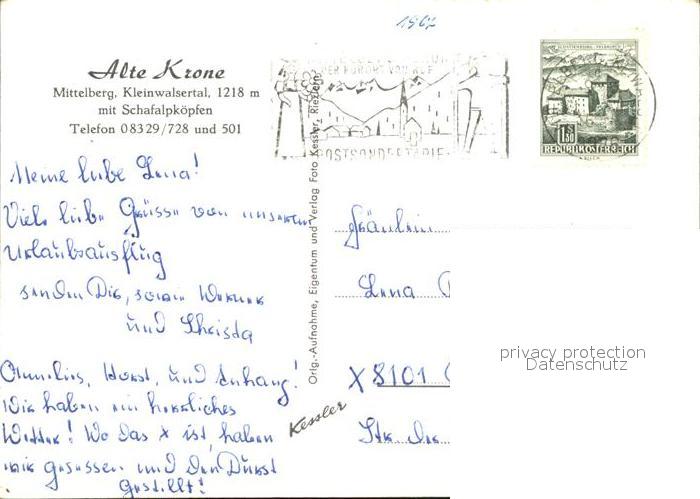 1967
Alte Krone
Mittelberg, Kleinwalsertal, 1218 m
mit Schafalpköpfen
Telefon 08329/728 und 501
KURORT VON RUF
POSTSONDERTARIF
1.50
REPUBLIK ÖSTERREICH
Meine liebe Lena!
Viele liebe Grüsse von unserem
Urlaubsausflug
senden Dir, sowie Werner
und Christa
Horst, und Anhang!
Wir haben ein herrliches
Wetter! Wo das x ist, haben
wir gesessen und den Durst
gestillt!
Orig.-Aufnahme, Eigentum und Verlag Foto Kessler, Riezlern
Kessler
Fräulein
Lena
X 8101
Str. des
privacy protection
Datenschutz